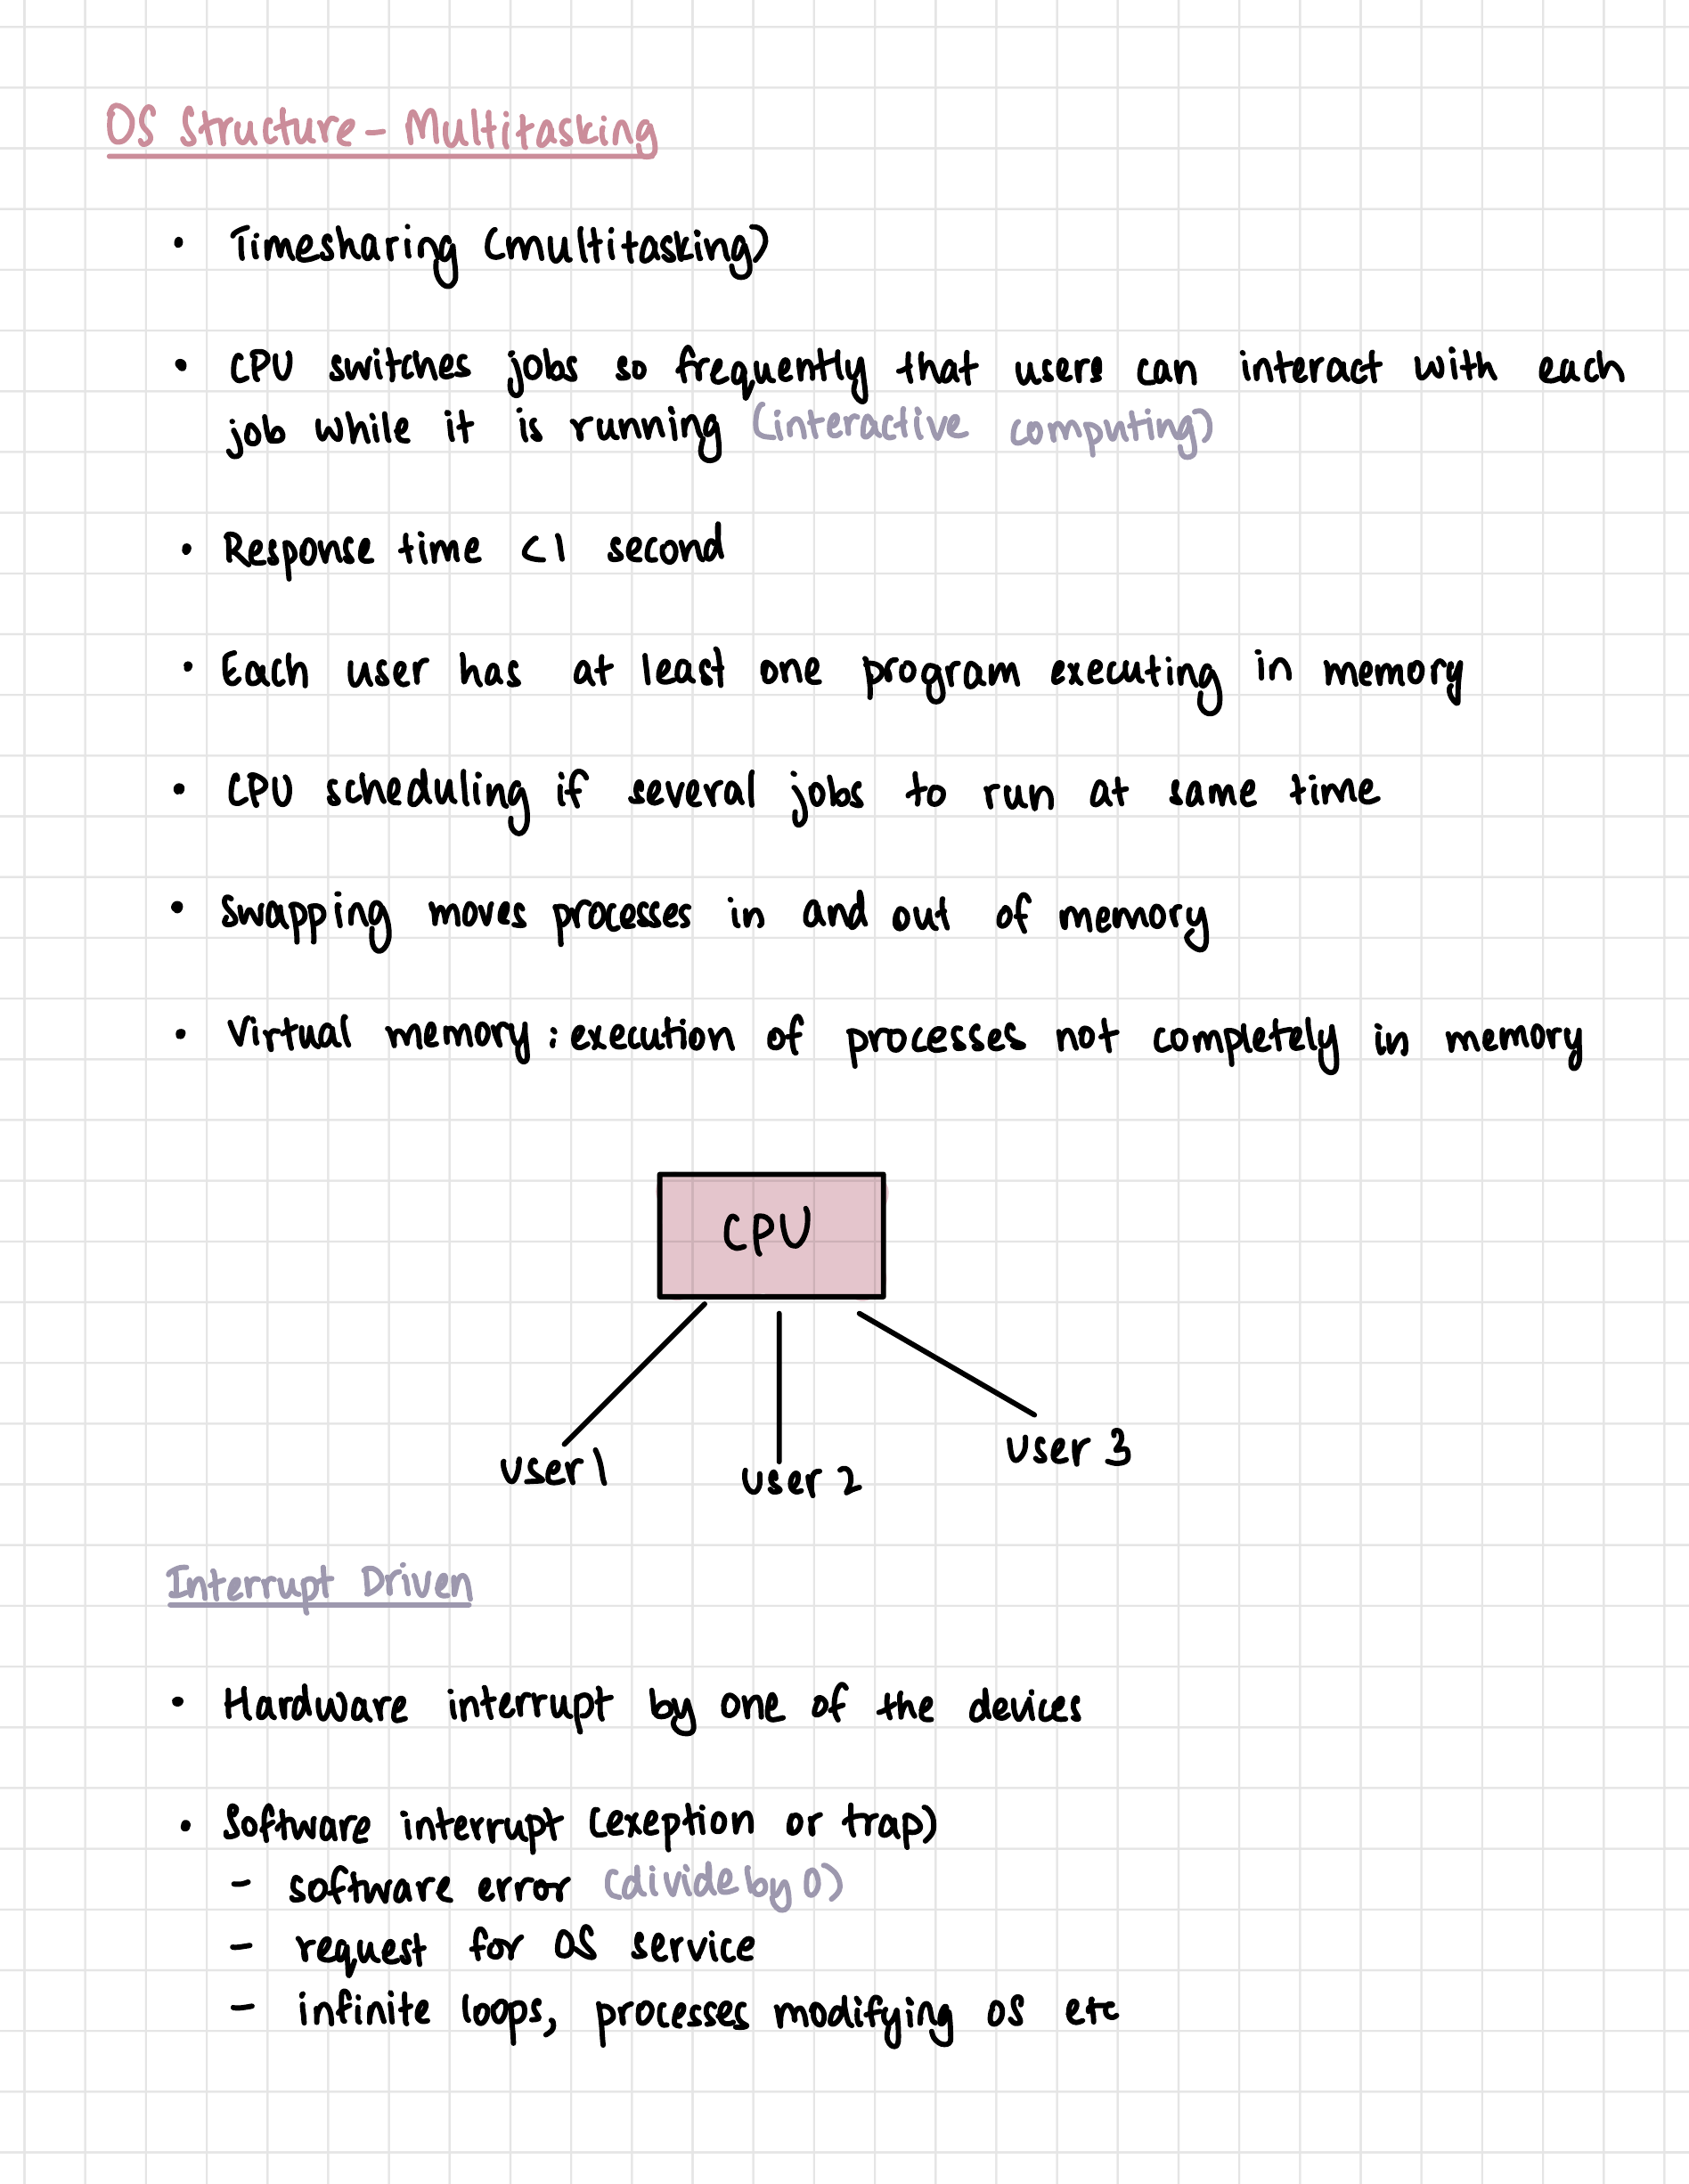 OS Structure - Multitasking
• Timesharing (multitasking)
• CPU switches jobs so frequently that users can interact with each
job while it is running (interactive computing)
• Response time <1 second
• Each user has at least one program executing in memory
• CPU scheduling if several jobs to run at same time
• Swapping moves processes in and out of memory
• Virtual memory : execution of processes not completely in memory
CPU
User 1
User 2
User 3
Interrupt Driven
• Hardware interrupt by one of the devices
• Software interrupt (exeption or trap)
- software error (divide by 0)
- request for OS service
- infinite loops, processes modifying OS etc